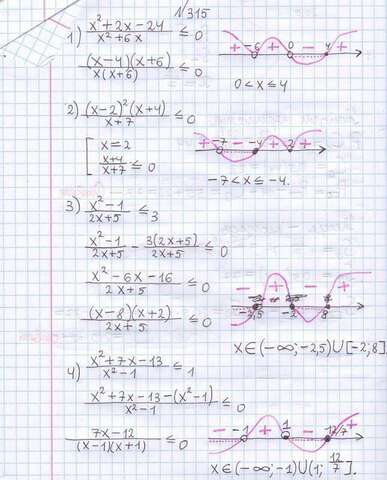 N315
1) (x²+2x-24)/(x²+6x) ≤ 0
+ -6 + 0 - 4 +
((x-4)(x+6))/(x(x+6)) ≤ 0
0 < x ≤ 4
2) ((x-2)²(x+4))/(x+7) ≤ 0
[ x=2
(x+4)/(x+7) ≤ 0
+ -7 - -4 + 2 +
-7 < x ≤ -4.
3) (x²-1)/(2x+5) ≤ 3
(x²-1)/(2x+5) - (3(2x+5))/(2x+5) ≤ 0
(x²-6x-16)/(2x+5) ≤ 0
((x-8)(x+2))/(2x+5) ≤ 0
- -2,5 + -2 - 8 +
x∈(-∞;-2,5)∪[-2;8]
4) (x²+7x-13)/(x²-1) ≤ 1
(x²+7x-13-(x²-1))/(x²-1) ≤ 0
(7x-12)/((x-1)(x+1)) ≤ 0
- -1 + 1 - 12/7 +
x∈(-∞;-1)∪(1; 12/7].